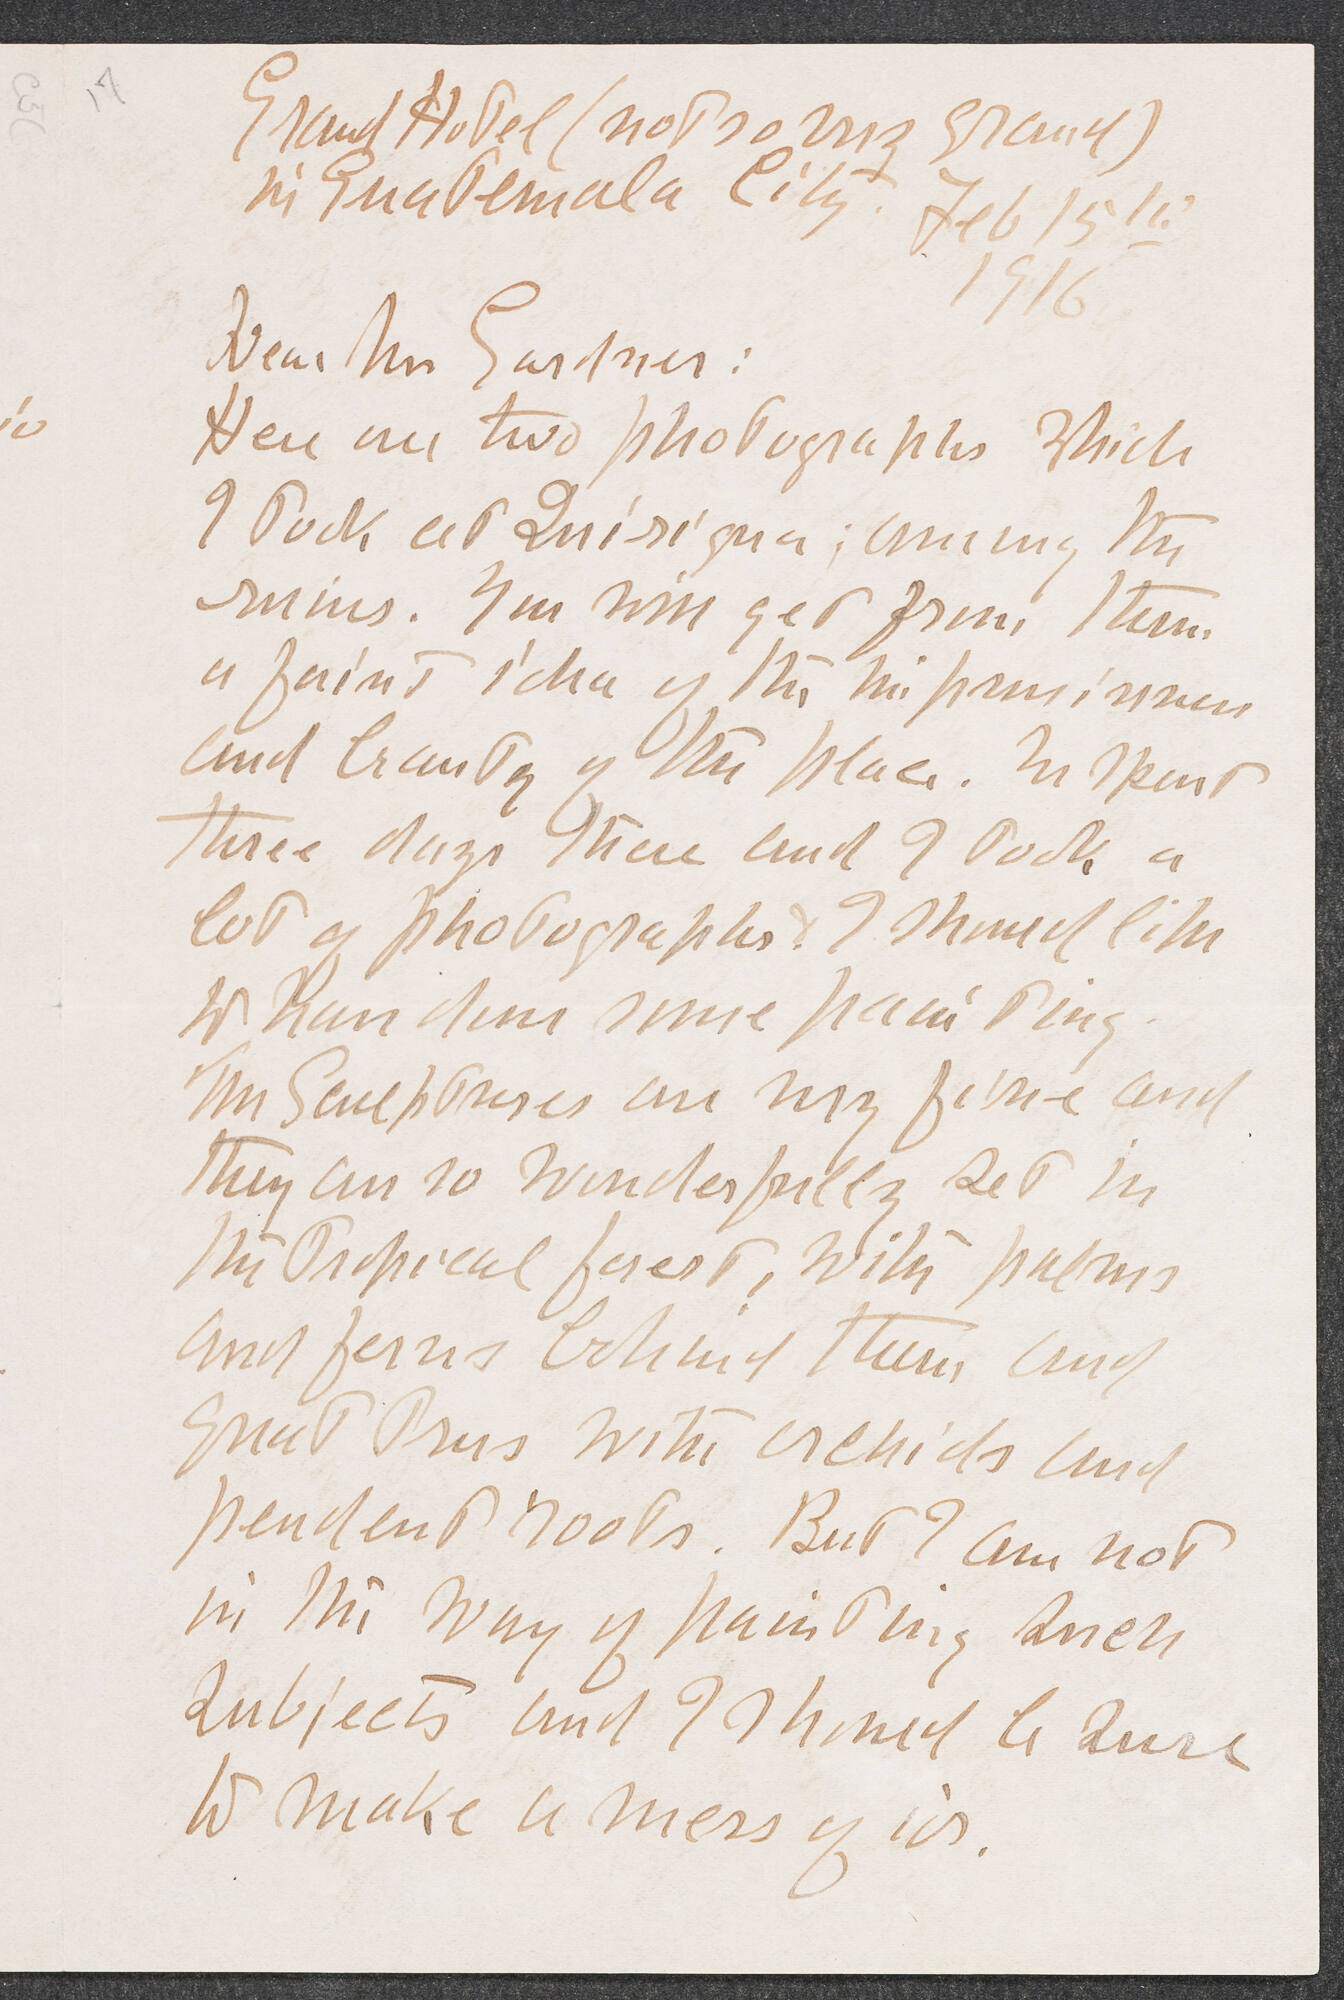 17
Grand Hotel (not so very grand)
in Guatemala City. Feb 15th
1916
Dear Mrs Gardner:
Here are two photographs which
I took at Quirigua; among the
ruins. You will get from them
a faint idea of the impressiveness
and beauty of the place. We spent
three days there and I took a
lot of photographs & I should like
to have done some painting.
The Sculptures are very fine and
they are so wonderfully set in
the tropical forest, with palms
and ferns behind them and
great trees with orchids and
pendent roots. But I am not
in the way of painting such
subjects and I should be sure
to make a mess of it.